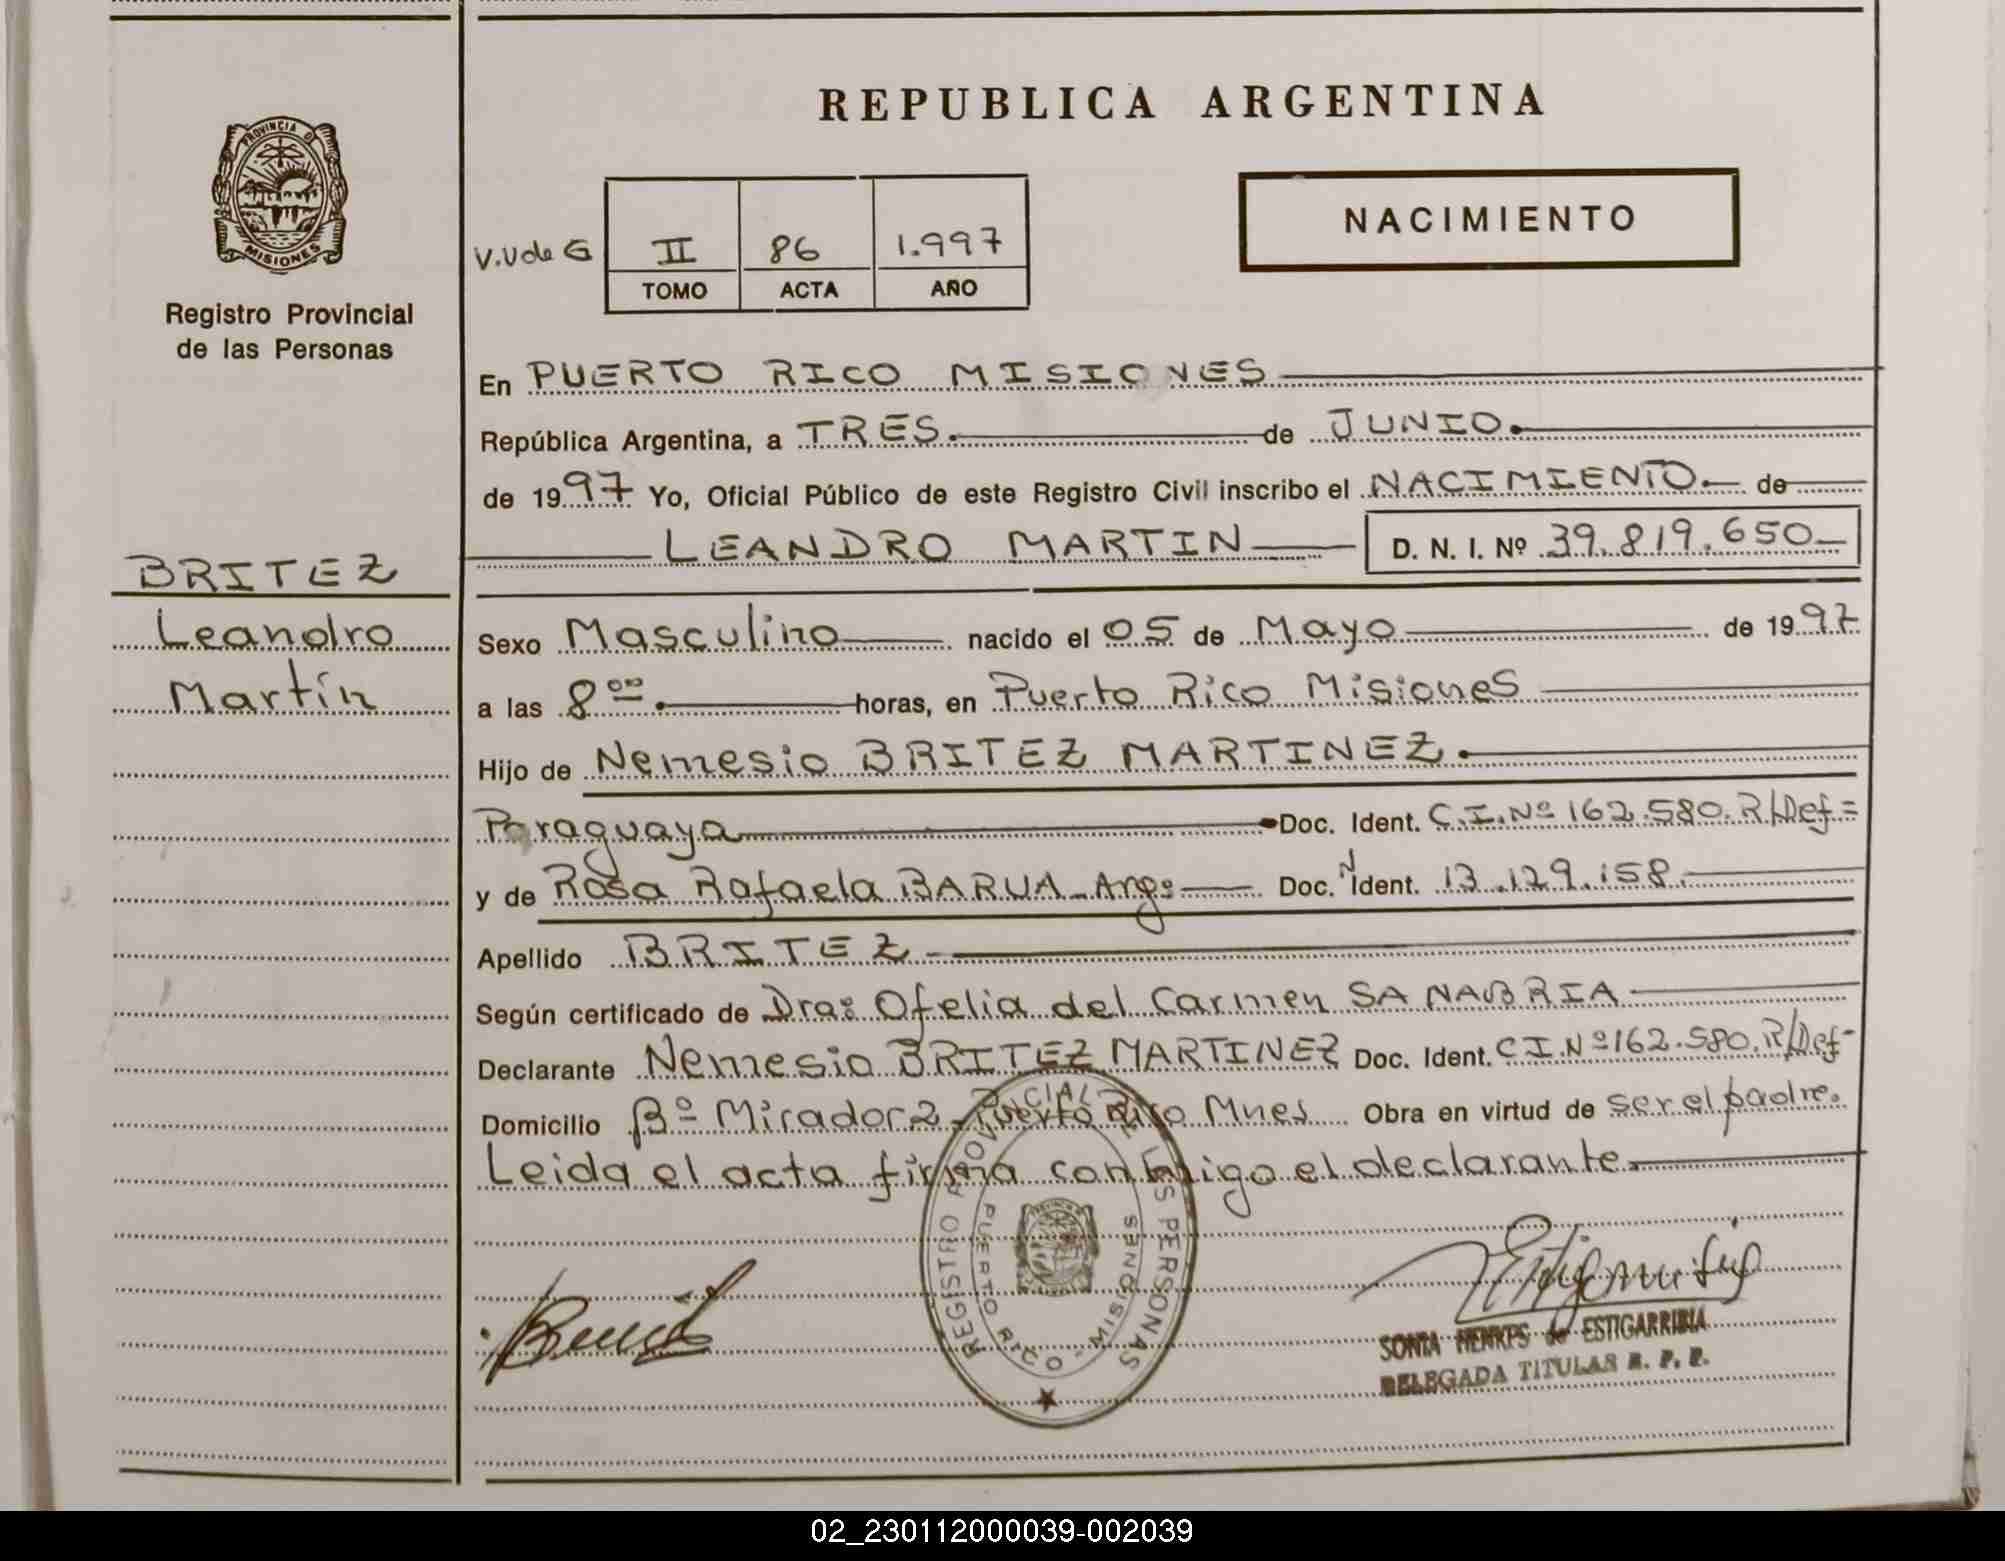 REPUBLICA ARGENTINA
PROVINCIA DE
MISIONES
Registro Provincial
de las Personas
NACIMIENTO
V.U de G II 86 1.997
TOMO ACTA AÑO
En PUERTO RICO MISIONES
República Argentina, a TRES. de JUNIO.
de 1997 Yo, Oficial Público de este Registro Civil inscribo el NACIMIENTO. de
LEANDRO MARTIN D. N. I. Nº 39.819.650
BRITEZ
Leandro
Martín
Sexo Masculino nacido el 05 de Mayo de 1997
a las 8 00. horas, en Puerto Rico Misiones
Hijo de Nemesio BRITEZ MARTINEZ.
Paraguaya Doc. Ident. C.I.Nº 162.580.R/Def=
y de Rosa Rafaela BARUA_Arg: Doc. N Ident. 13.129.158.
Apellido BRITEZ
Según certificado de Dra: Ofelia del Carmen SANABRIA
Declarante Nemesio BRITEZ MARTINEZ Doc. Ident. C I.Nº162.580.R/Def-
Domicilio Bº Mirador 2_Puerto Rico Mnes Obra en virtud de ser el padre.
Leida el acta firma conmigo el declarante.
REGISTRO PROVINCIAL DE LAS PERSONAS
PUERTO RICO - MISIONES
SONIA HENKPS de ESTIGARRIBIA
DELEGADA TITULAR R. P. P.
02_230112000039-002039